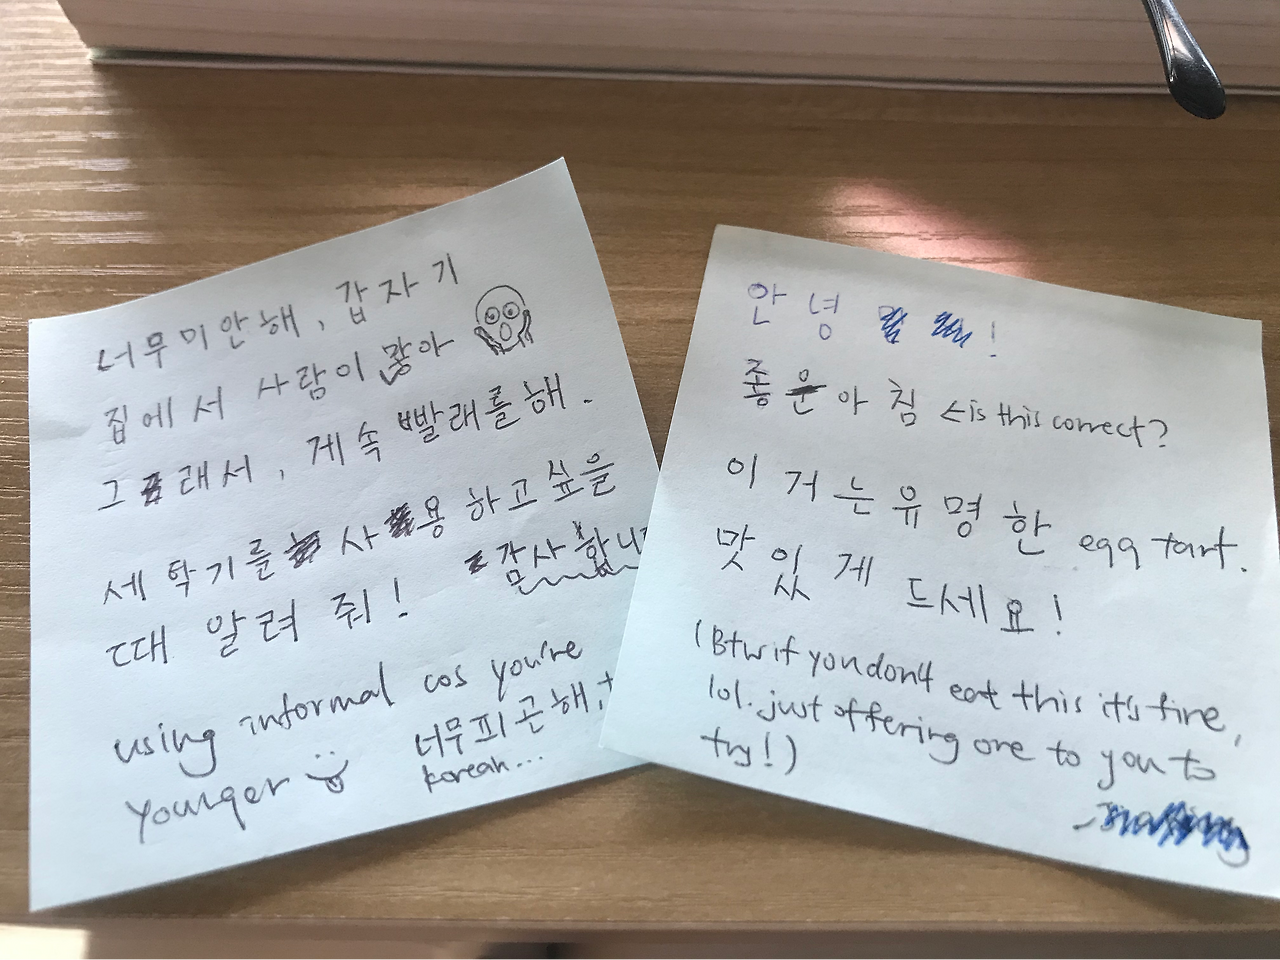 너무 미안해, 갑자기
집에서 사람이 많아
그래서, 계속 빨래를 해.
세탁기를 사용하고 싶을
때 알려줘! 감사합니
using informal cos you're
younger
너무 피곤해,
korean...
안녕 !
좋은 아침 < is this correct?
이거는 유명한 egg tart.
맛있게 드세요!
(Btw if you don't eat this it's fine,
lol. just offering one to you to
try!)